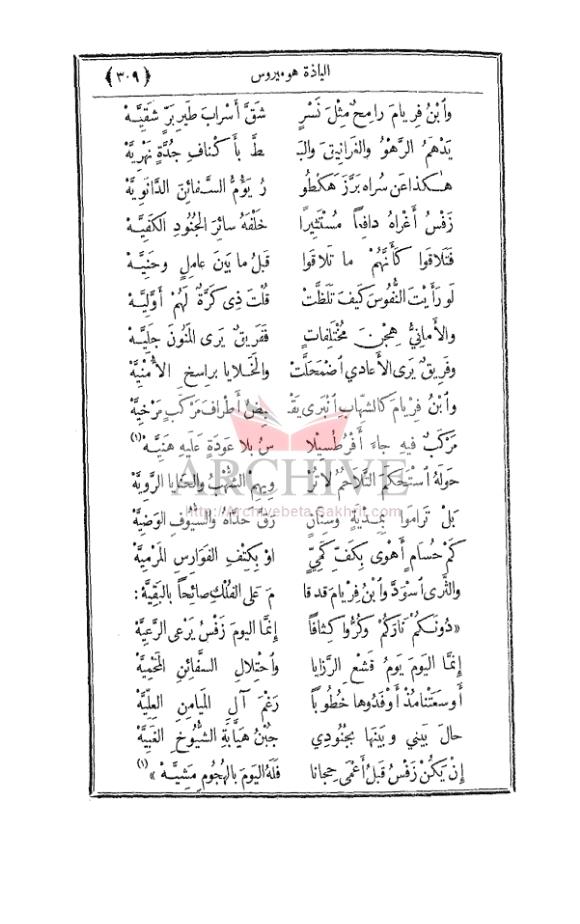 الياذة هوميروس (٣٠٩)
وٱبْنُ فِريامَ رامِحٌ مِثلَ نَسْرٍ شَقَّ أَسْرابَ طَيرِ بَرٍّ شَقِيَّهْ
يَدْهَمُ الرَّهْوَ والغَرانِيقَ والبَـ ـطَّ بأَكنافِ جُدَّةٍ نَهْرِيَّهْ
هٰكذا عَن سُراه بَرَّزَ هَكطُو رُ يَؤُمُّ السَّفائِنَ الدَّانَوِيَّهْ
زَفْسُ أَغْراهُ دافِعاً مُسْتَثِيرًا خَلْفَهُ سائِرَ الجُنُودِ الكَفِيَّهْ
فَتَلاقَوا كَأَنَّهُمْ ما تَلاقَوا قَبلُ ما بَينَ عامِلٍ وحَنِيَّهْ
لو رَأَيتَ النُّفُوسَ كَيفَ تَلَظَّتْ قُلتَ ذي كَرَّةٌ لَهُمْ أَوَّلِيَّهْ
والأَمانِيُّ هِجْنَ مُخْتَلِفاتٍ فَفَرِيقٌ يَرى المَنُونَ جَلِيَّهْ
وفَرِيقٌ يَرى الأَعادي ٱضْمَحَلَّتْ والخَلايا بِراسِخِ الأُمْنِيَّهْ
وٱبْنُ فِريامَ كالشِّهابِ ٱنْبَرى يَقْـ ـبِضُ أَطْرافَ مَركَبٍ مَرْخِيَّهْ
مَرْكَبٌ فيهِ جاءَ أَفْرُطُسِيلا سُ بلا عَودَةٍ عَلَيهِ هَنِيَّهْ (١)
حَولَهُ ٱسْتَحْكَمَ التَّلاحُمُ لا تُرْ وِيهِمِ الشُّهْبُ والحَنايا الرَّوِيَّهْ
بَلْ تَرامَوا بِمِدْيَةٍ وسِنانٍ رَقَّ حَدَّاهُ والسُّيُوفِ الوَضِيَّهْ
كَمْ حُسامٍ أَهْوى بِكَفِّ كَمِيٍّ او بِكَتْفِ الفَوارِسِ المَرْمِيَّهْ
والثَّرى ٱسْوَدَّ وٱبْنُ فِرْيامَ قد قا مَ عَلى الفُلْكِ صائِحاً بالبَقِيَّهْ :
«دُونَكُمْ نارَكُمْ وكُرُّوا كِثافاً إِنَّما اليَومَ زَفْسُ يَرْعى الرَّعِيَّهْ
إِنَّما اليَومَ يَومُ قَشْعِ الرَّزايا وٱحْتِلالِ السَّفائِنِ المَحْمِيَّهْ
أَوسَعَتْنا مُذْ أَوفَدُوها خُطُوباً رَغْمَ آلِ المَيامِنِ العِلِيَّهْ
حالَ بَيني وبَينَها بِجُنُودي جُبْنُ هَيَّابَةِ الشُّيُوخِ الغَبِيَّهْ
إِنْ يَكُنْ زَفْسُ قَبلُ أَعْمى حِجانا فَلَهُ اليَومَ بالهُجُومِ مَشِيَّهْ» (١)
ARCHIVE
http://Archivebeta.Sakhrit.com